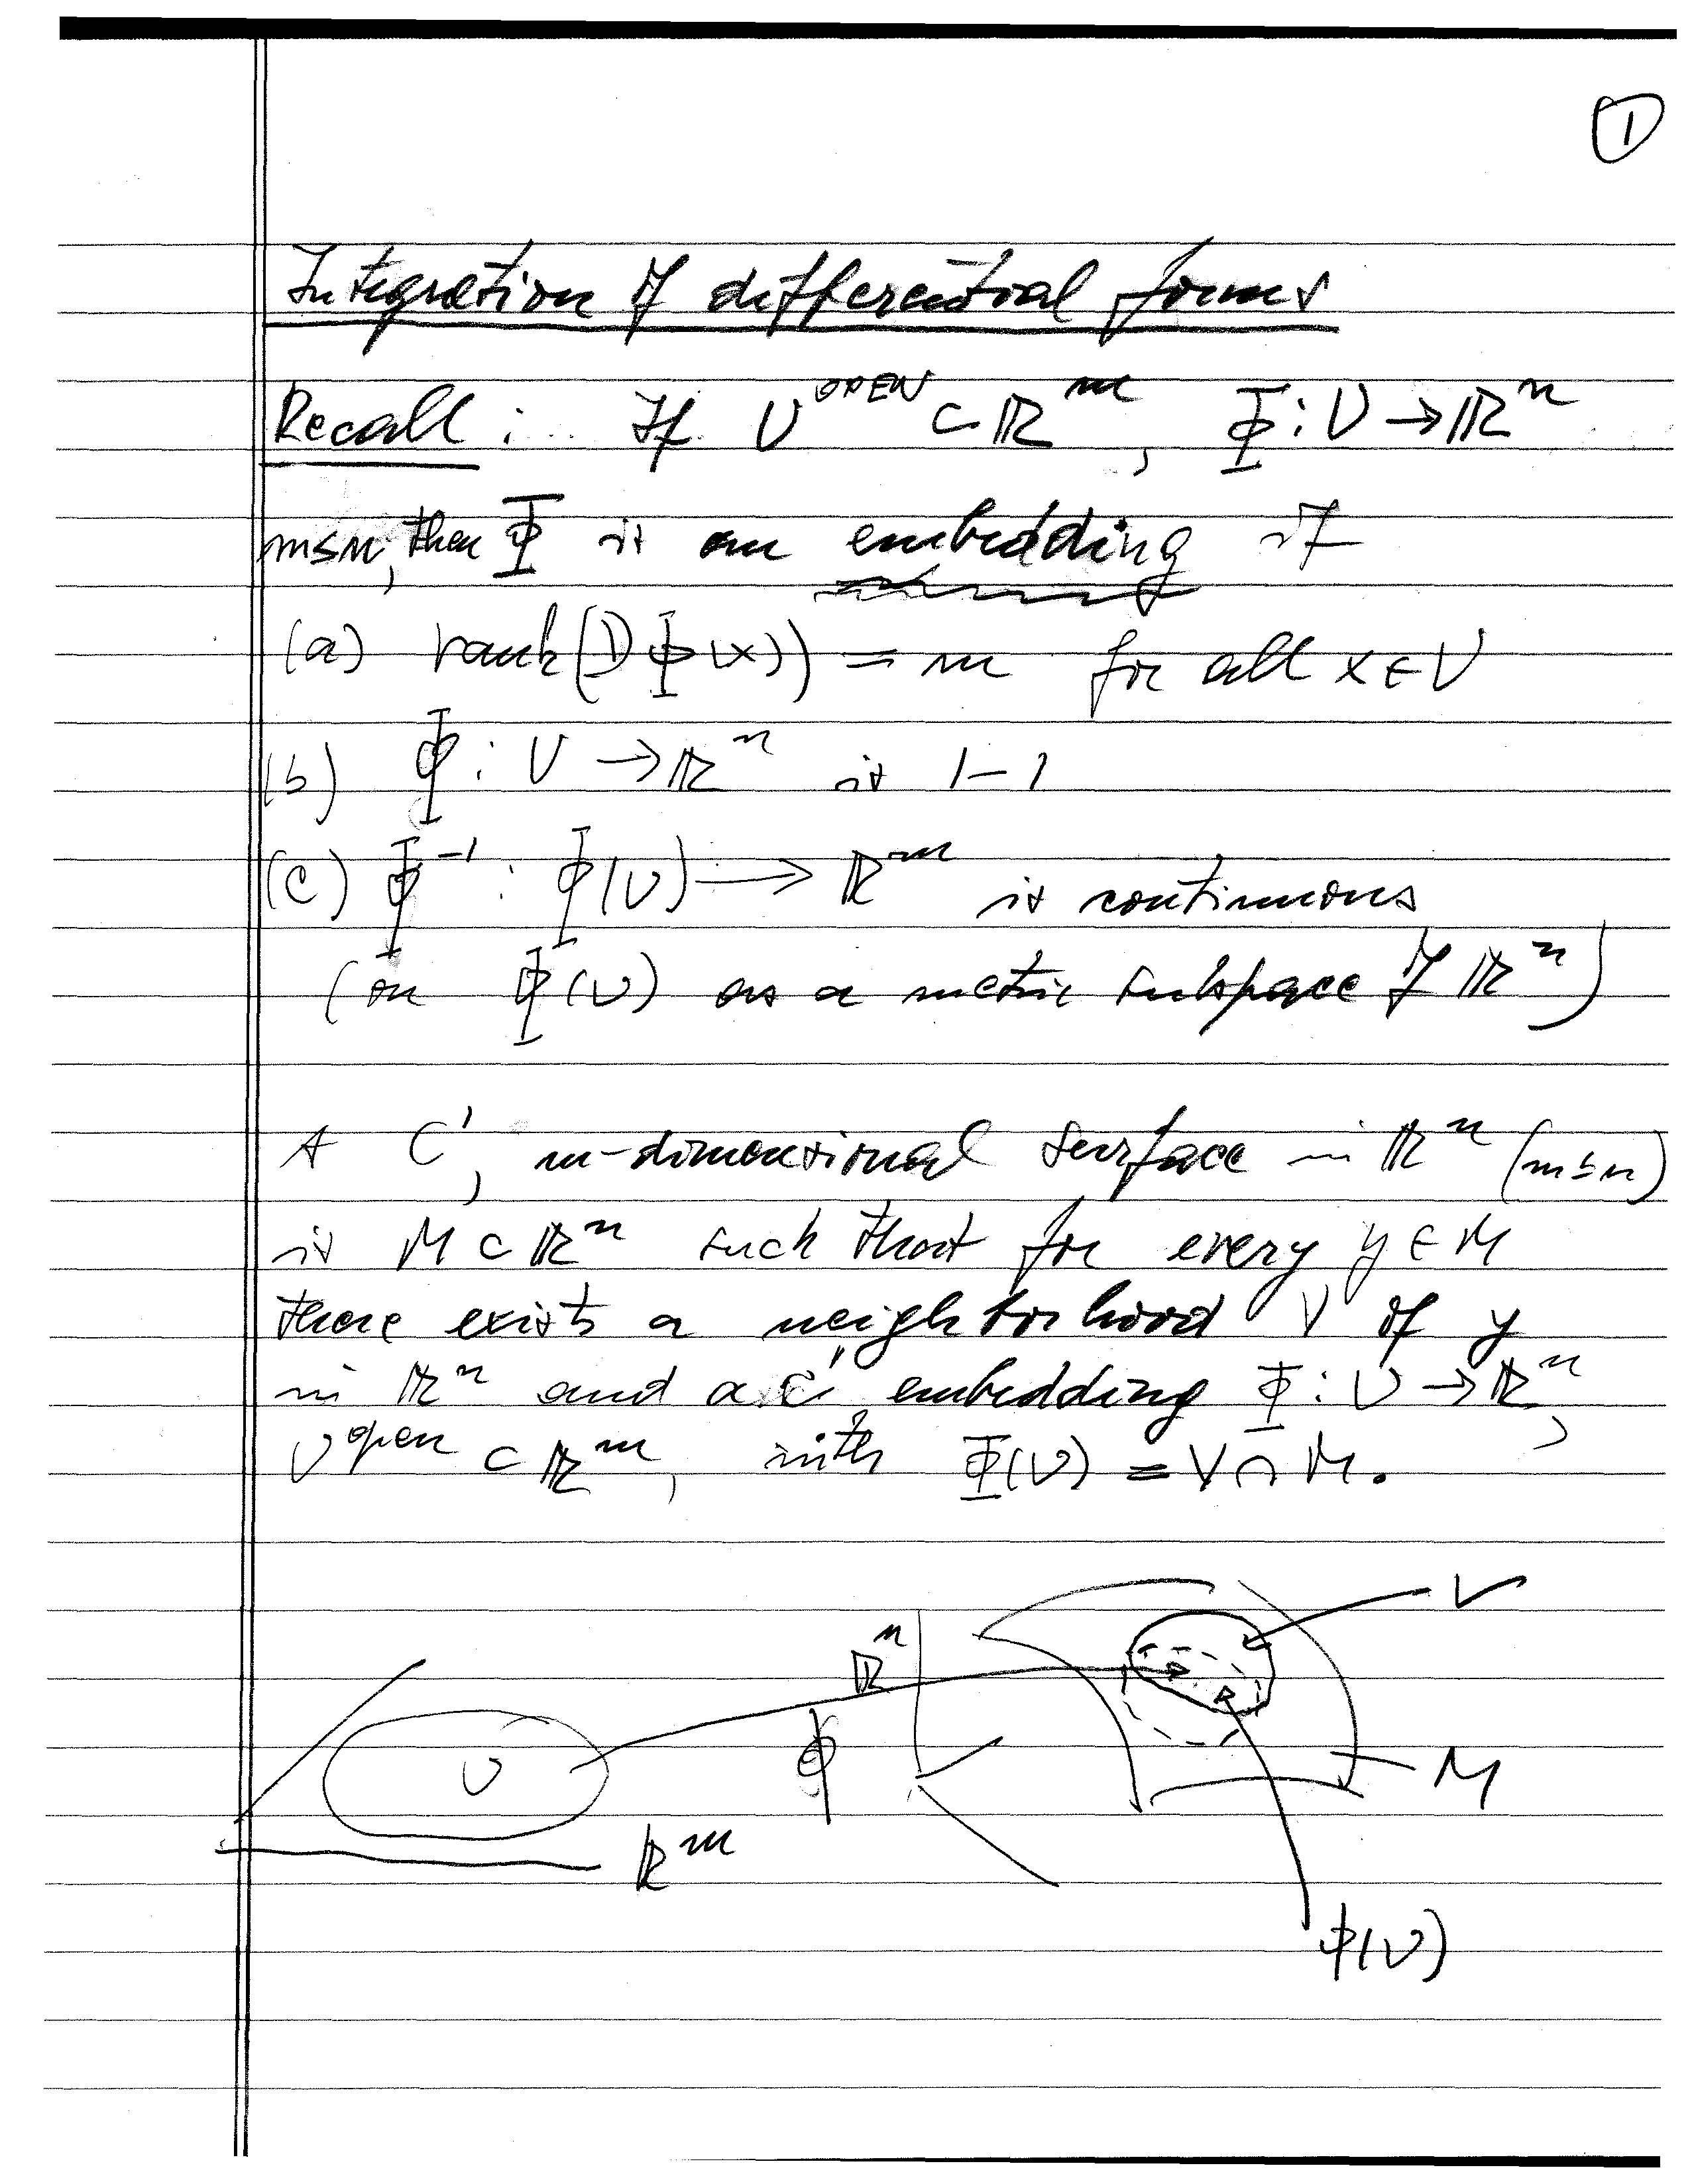 ①
Integration of differential forms
Recall: If U^OPEN ⊂ ℝ^m, Φ: U → ℝ^n
m≤n, then Φ is an embedding if
(a) rank(DΦ(x)) = m for all x ∈ U
(b) Φ: U → ℝ^n is 1-1
(c) Φ^-1: Φ(U) → ℝ^m is continuous
(on Φ(U) as a metric subspace of ℝ^n)
A C^1, m-dimensional surface in ℝ^n (m≤n)
is M ⊂ ℝ^n such that for every y ∈ M
there exists a neighborhood V of y
in ℝ^n and a C^1 embedding Φ: U → ℝ^n,
U^open ⊂ ℝ^m, with Φ(U) = V ∩ M.
V
ℝ^n
U
Φ
M
ℝ^m
Φ(U)